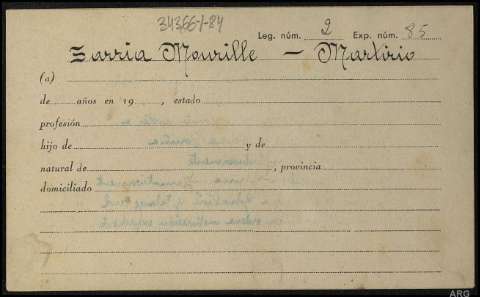 34366-1-84
Leg. núm. 2 Exp. núm. 85
Sarria Mourille — Martirio
(a)
de años en 19 , estado
profesión
hijo de y de
natural de , provincia
domiciliado
ARG